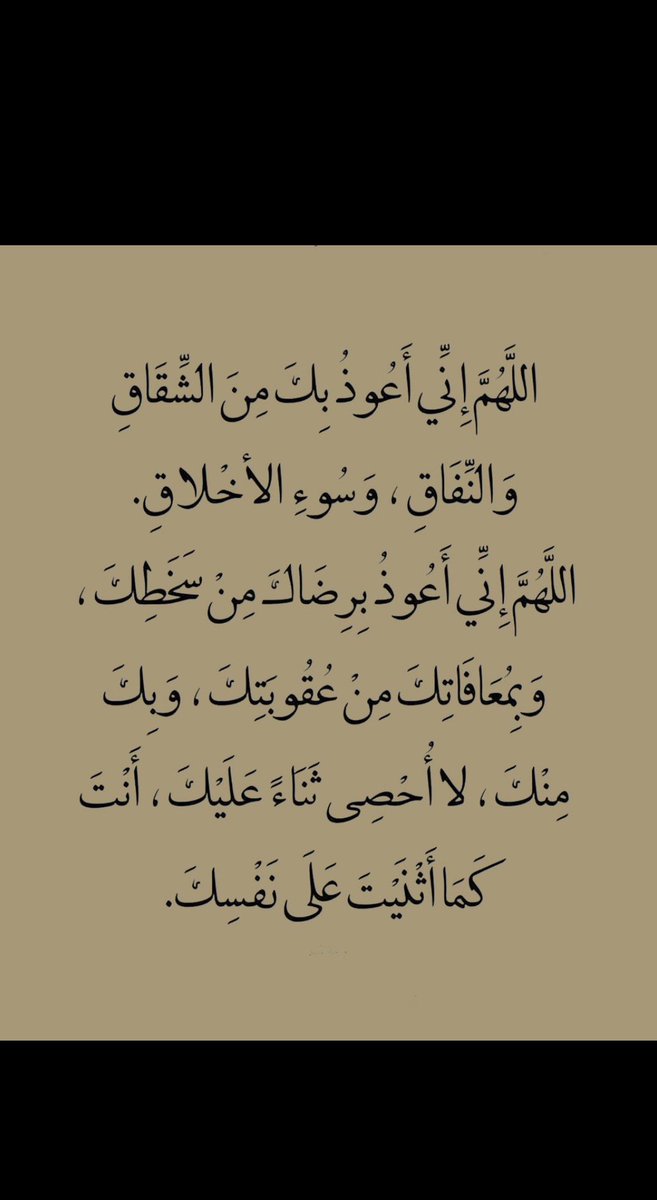 اللَّهُمَّ إِنِّي أَعُوذُ بِكَ مِنَ الشِّقَاقِ
وَالنِّفَاقِ، وَسُوءِ الأخْلاقِ.
اللَّهُمَّ إِنِّي أَعُوذُ بِرِضَاكَ مِنْ سَخَطِكَ،
وَبِمُعَافَاتِكَ مِنْ عُقُوبَتِكَ، وَبِكَ
مِنْكَ، لا أُحْصِى ثَنَاءً عَلَيْكَ، أَنْتَ
كَمَا أَثْنَيْتَ عَلَى نَفْسِكَ.